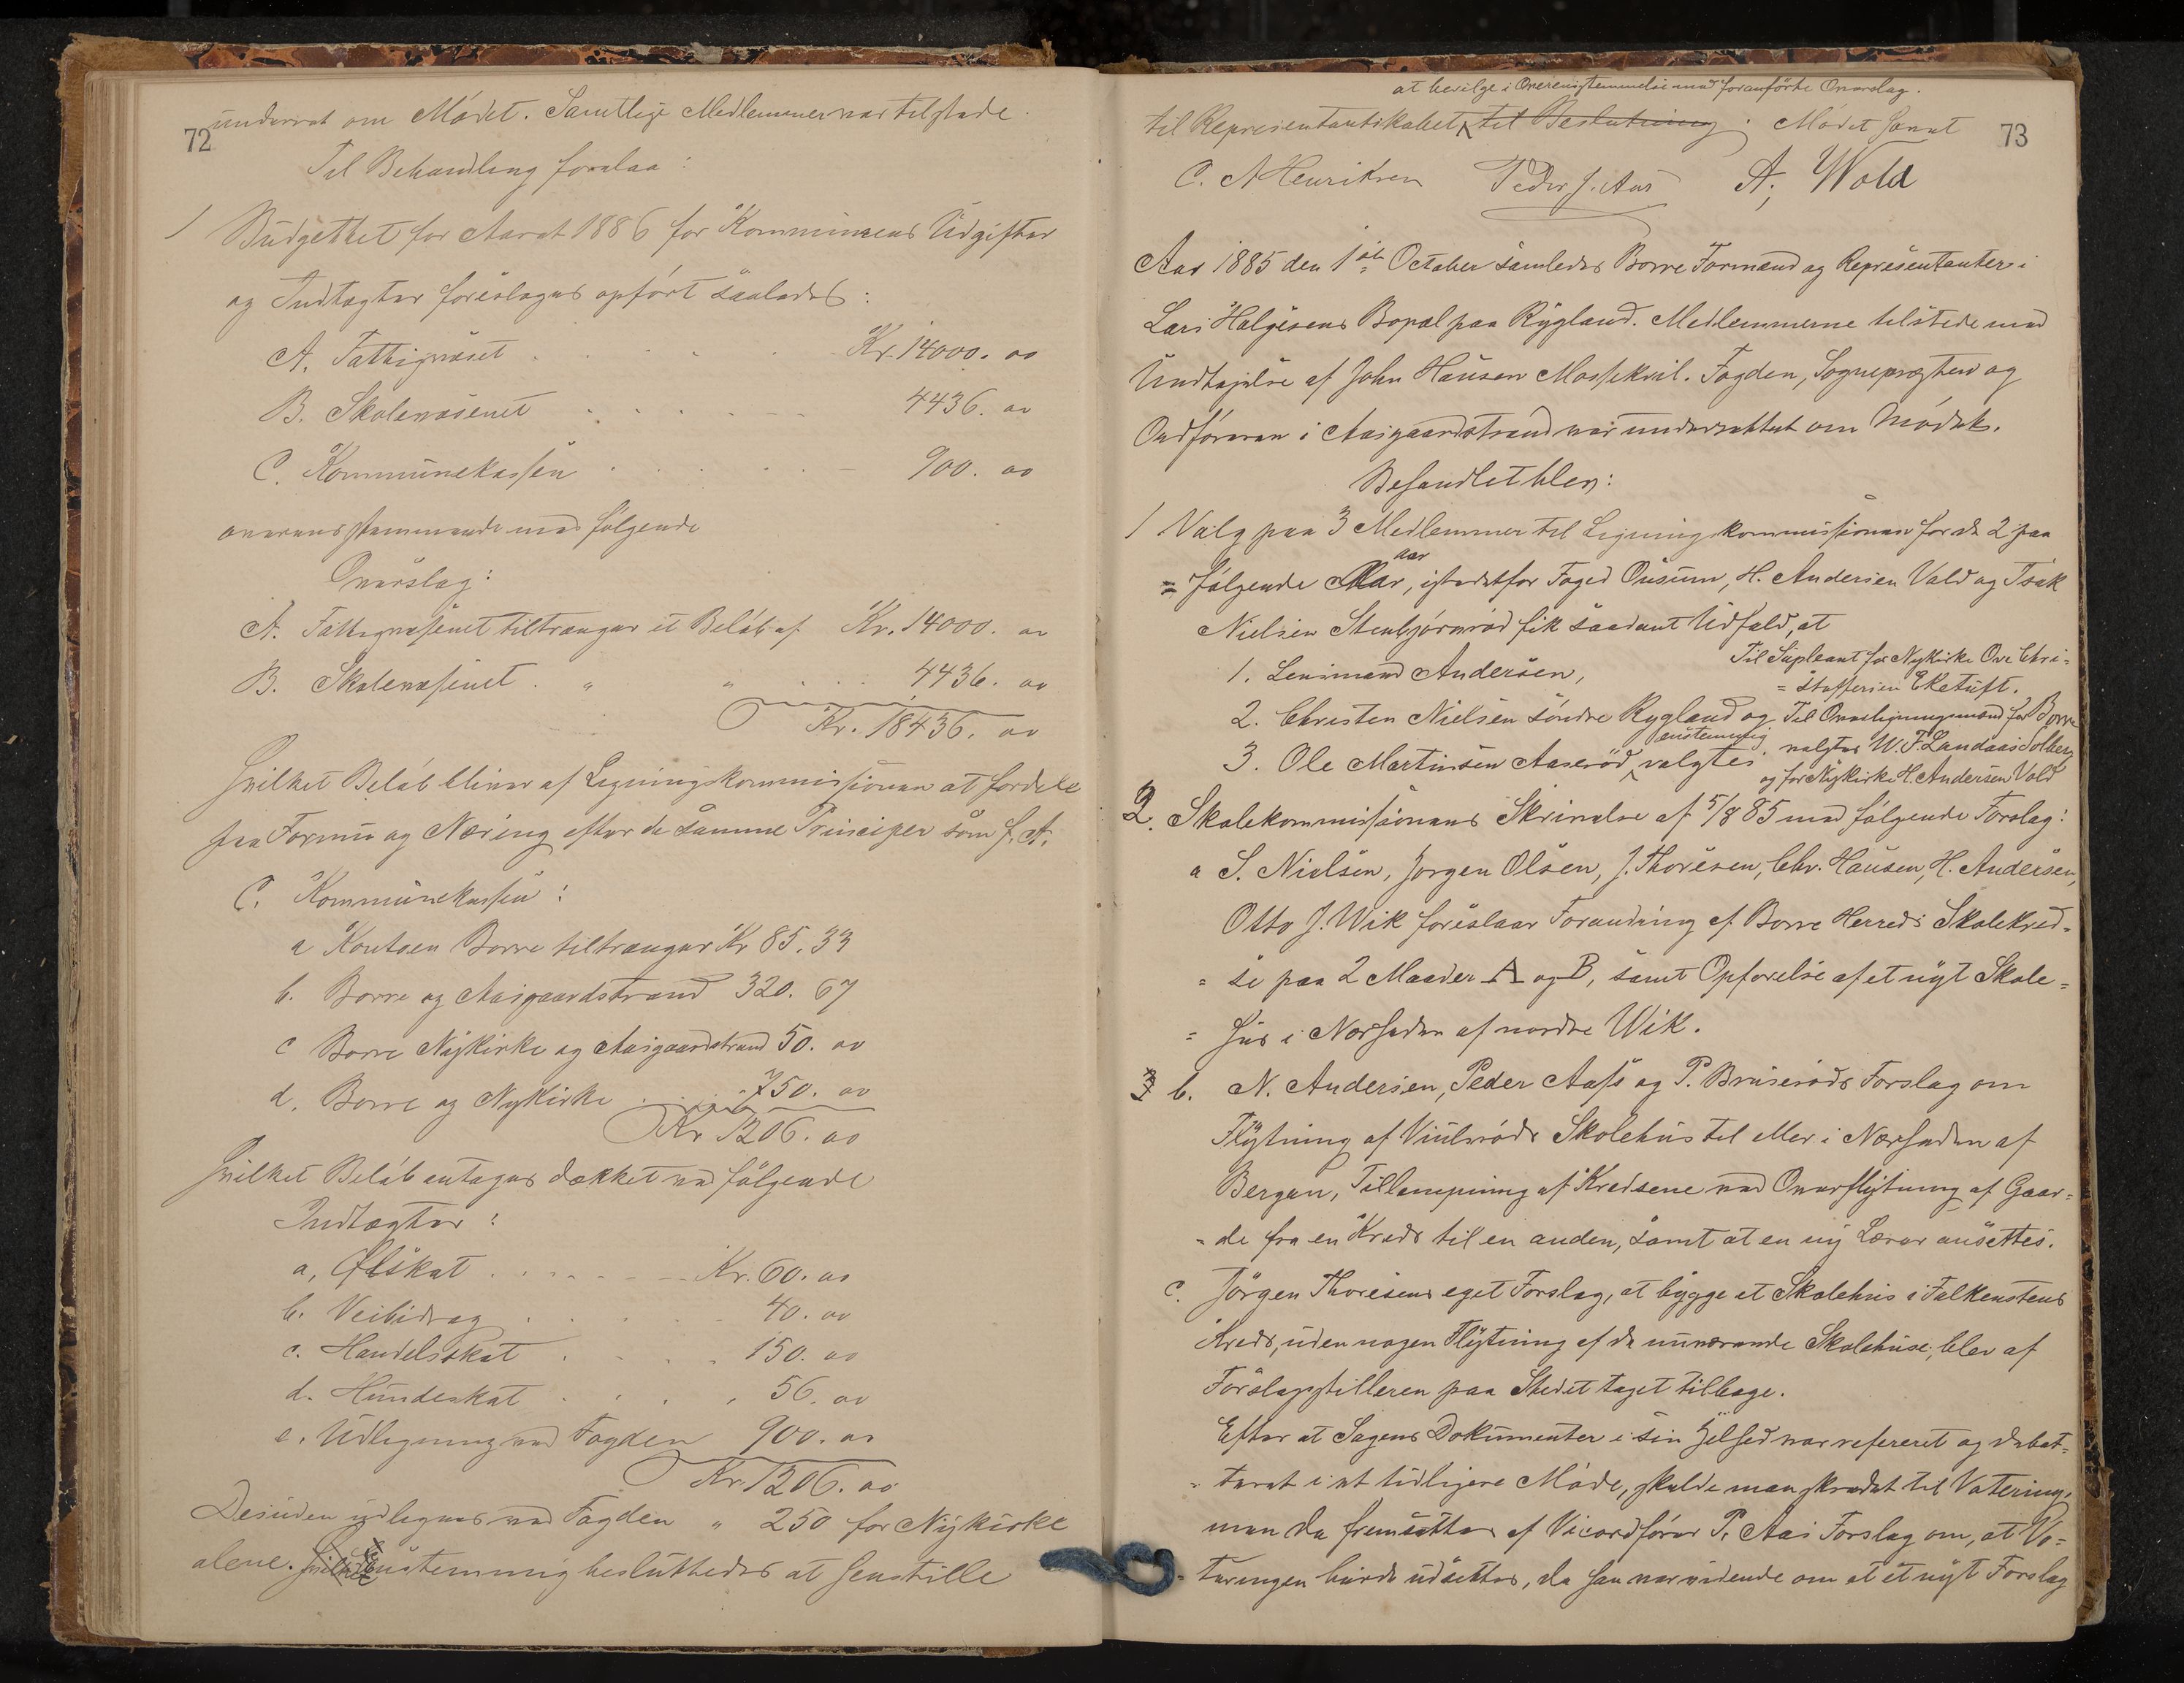 72
underret om Mødet. Samtlige Medlemmer var tilstede.
Til Behandling forelaa:
1 Budgettet for Aaret 1886 for Kommunens Udgifter
og Indtægter foreslages opført saaledes:
A. Fattigvæset . . . . Kr. 14000. 00
B. Skolevæsenet . . . . 4436. 00
C. Kommunekassen . . . . 900. 00
overensstemmende med følgende
Overslag:
A. Fattigvæsenet tiltrænger et Beløb af Kr. 14000. 00
B. Skolevæsenet . " " . . . 4436. 00
Kr. 18436. 00
hvilket Beløb bliver af Ligningskommissionen at fordele
paa Formue og Næring efter de samme Principer som f. A.
C. Kommunekassen:
a Kontoen Borre tiltrænger Kr 85. 33
b. Borre og Aasgaardstrand 320. 67
c Borre Nykirke og Aasgaardstrand 50. 00
d. Borre og Nykirke . . . 750. 00
Kr 1206. 00
hvilket Beløb antages dækket ved følgende
Indtægter:
a, Ølskat . . . . Kr. 60. 00
b. Veibidrag . . . . 40. 00
c. Handelsskat . . . . 150. 00
d. Hundeskat . . . . 56. 00
e. Udligning ved Fogden 900. 00
Kr 1206. 00
Desuden udlignes ved Fogden " 250 for Nykirke
alene. Enstemmig besluttedes at henstille
73
at bevilge i Overensstemmelse med foranførte Overslag.
til Representantskabet til Beslutning. Mødet hævet
C. A Henriksen Peder J. Aas A. Wold
Aar 1885 den 1ste October samledes Borre Formænd og Repræsentanter i
Lars Halgesens Bopæl paa Rygland. Medlemmerne tilstede med
Undtagelse af John Hansen Massekvil. Fogden, Sognepræsten og
Ordføreren i Aasgaardstrand var underrettet om Mødet.
Behandlet blev:
1 Valg paa 3 Medlemmer til Ligningskommissionen for de 2 paa
= følgende Aar aar, istedetfor Foged Ousum, H. Andersen Vold og Isak
Nielsen Stenbjørnrød fik saadant Udfald, at
1. Lensmand Andersen,
Til Supleant for Nykirke Ove Chri=
= stoffersen Eketuft.
2. Christen Nielsen søndre Rygland og
Til Overligningsmænd for Borre
3. Ole Martinsen Aaserød enstemmig valgtes.
valgtes W. F. Landaas Solberg
og for Nykirke H. Andersen Vold
2. Skolekommissionens Skrivelse af 5/8 85 med følgende Forslag:
a S. Nielsen, Jørgen Olsen, J. Thoresen, Chr. Hansen, H. Andersen,
Otto J. Wik foreslaar Forandring af Borre Herreds Skolekred=
= se paa 2 Maader A og B, samt Opførelse af et nyt Skole=
= hus i Nærheden af nordre Wik.
b. N. Andersen, Peder Aass og P. Bruserøds Forslag om
Flytning af Viulsrøds Skolehus til eller i Nærheden af
Bergan, Tillempning af Kredsene ved Overflytning af Gaar=
= de fra en Kreds til en anden, samt at en ny Lærer ansettes.
c. Jørgen Thoresens eget Forslag, at bygge et Skolehus i Falkenstens
Kreds, uden nogen Flytning af de nuværende Skolehuse, blev af
Forslagstilleren paa Stedet taget tilbage.
Efter at Sagens Dokumenter i sin Helhed var refereret og debat=
= teret i et tidligere Møde, skulde man skredet til Votering,
men da fremsattes af Viceordfører P. Aas Forslag om, at Vo=
= teringen burde udsættes, da han var vidende om at et nyt Forslag